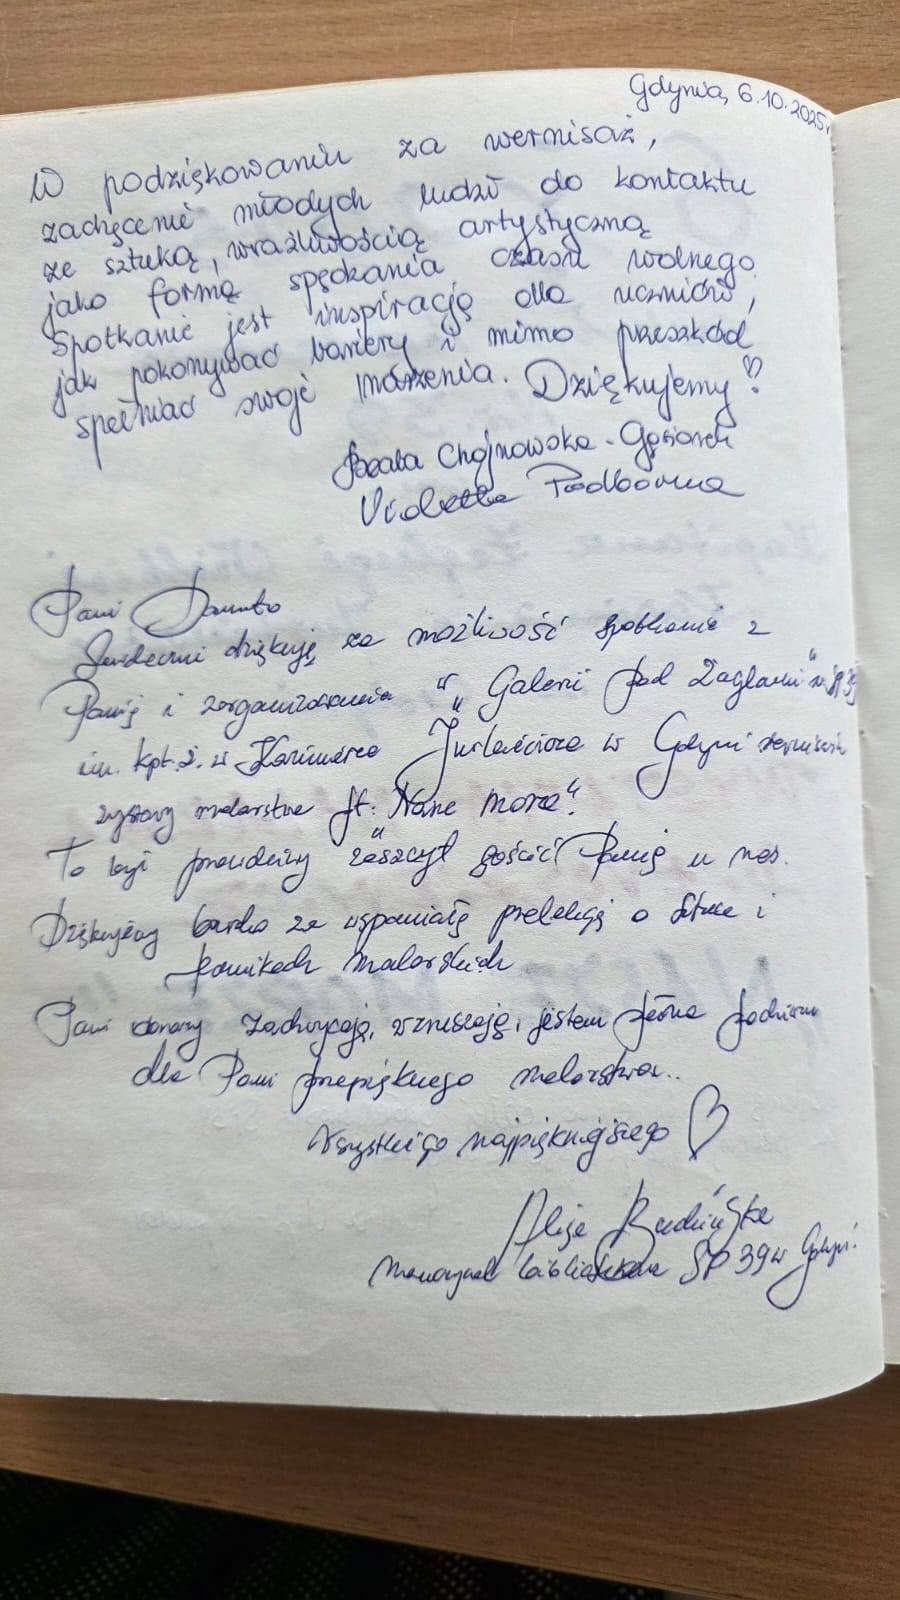 Gdynia, 6.10.2025r.
W podziękowaniu za wernisaż,
zachęcenie młodych ludzi do kontaktu
ze sztuką, wrażliwością artystyczną
jako formą spędzania czasu wolnego.
Spotkanie jest inspiracją dla uczniów,
jak pokonywać bariery i mimo przeszkód
spełniać swoje marzenia. Dziękujemy ♡
Beata Chojnowska-Gąsiorek
Violetta Podborna
Pani Danuto
Serdecznie dziękuję za możliwość spotkania z
Panią i zorganizowania w "Galerii Pod Żaglami" w SP 39
im. kpt. ż. w. Kazimierza Jurkiewicza w Gdyni wernisażu
wystawy malarstwa pt. "Nasze morze".
To był prawdziwy zaszczyt gościć Panią u nas.
Dziękujemy bardzo za wspaniałą prelekcję o sztuce i
technikach malarskich
Pani obrazy zachwycają, wzruszają, jestem pełna podziwu
dla Pani przepięknego malarstwa..
Wszystkiego najpiękniejszego ♡
nauczyciel bibliotekarz SP 39 w Gdyni.